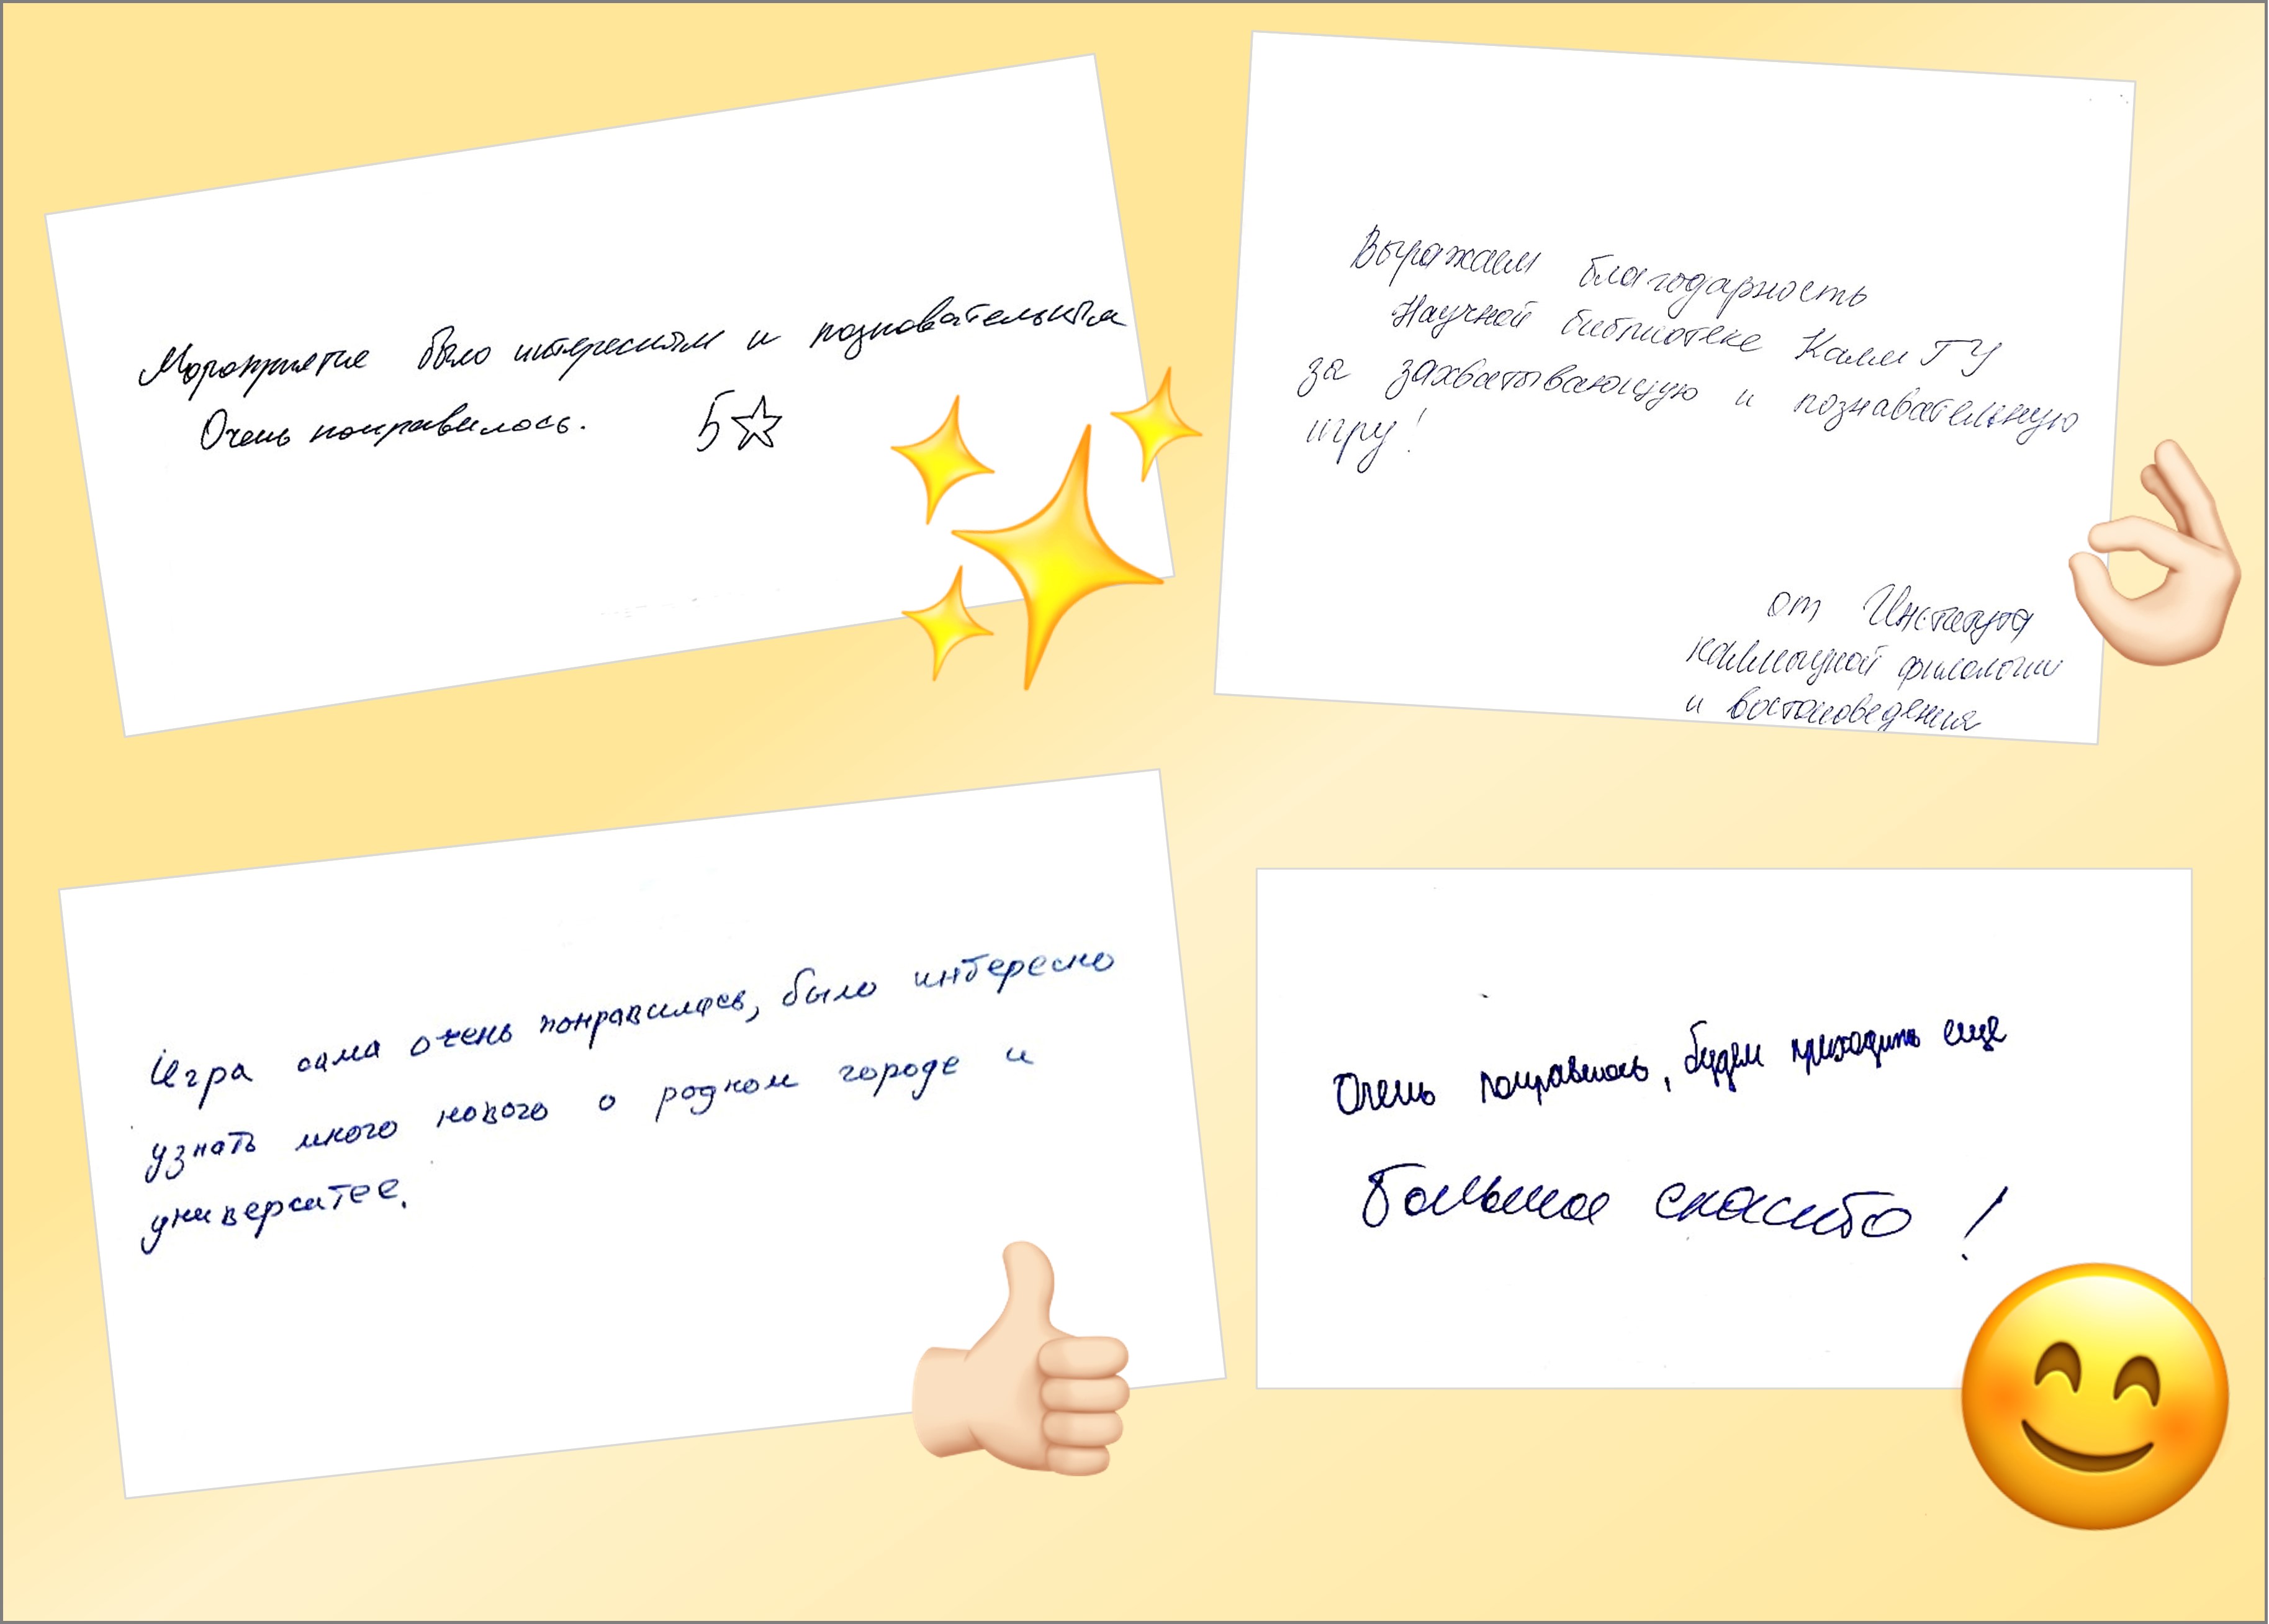 Мероприятие было интересным и познавательным
Очень понравилось. 5☆
Выражаем благодарность
Научной библиотеке КалмГУ
за захватывающую и познавательную
игру!
от Института
калмыцкой филологии
и востоковедения
Игра сама очень понравилась, было интересно
узнать много нового о родном городе и
университее.
Очень понравилось, будем приходить еще
Большое спасибо!